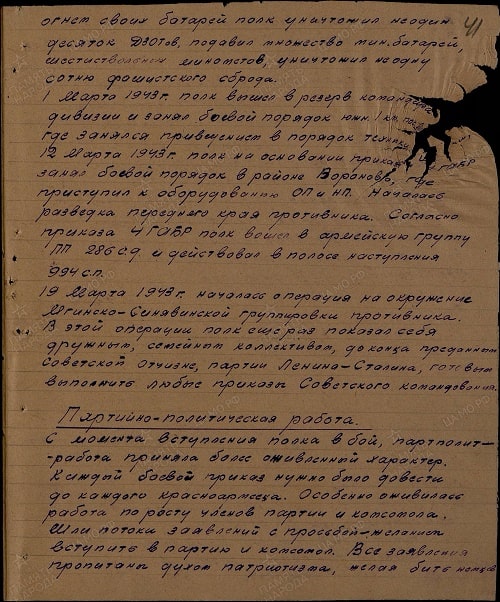 41
огнем своих батарей полк уничтожил не один
десяток Дзотов, подавил множество мин. батарей,
шестиствольных минометов, уничтожил не одну
сотню фошистского сброда.
1 Марта 1943г. полк вышел в резерв командира
дивизии и занял боевой порядок южн. 1 км.
где занялся приведением в порядок техники
12 Марта 1943г. полк на основании приказа 4 ГАБР
занял боевой порядок в районе Вороново, где
приступил к оборудованию ОП и НП. Началась
разведка переднего края противника. Согласно
приказа 4 ГАБР полк вошел в армейскую группу
ПП 286 с.д и действовал в полосе наступления
994 с.п.
19 Марта 1943г. началась операция на окружение
Мгинско-Синавинской группировки противника.
В этой операции полк еще раз показал себя
дружным, семейным коллективом, до конца преданным
Советской Отчизне, партии Ленина-Сталина, готовым
выполнить любые приказы Советского командования.
Партийно-политическая работа.
С момента вступления полка в бой, партполит-
-работа приняла более оживленный характер.
Каждый боевой приказ нужно было довести
до каждого красноармейца. Особенно оживилась
работа по росту членов партии и комсомола.
Шли потоки заявлений с просьбой-желанием
вступить в партию и комсомол. Все заявления
пропитаны духом патриотизма, желая бить немцев